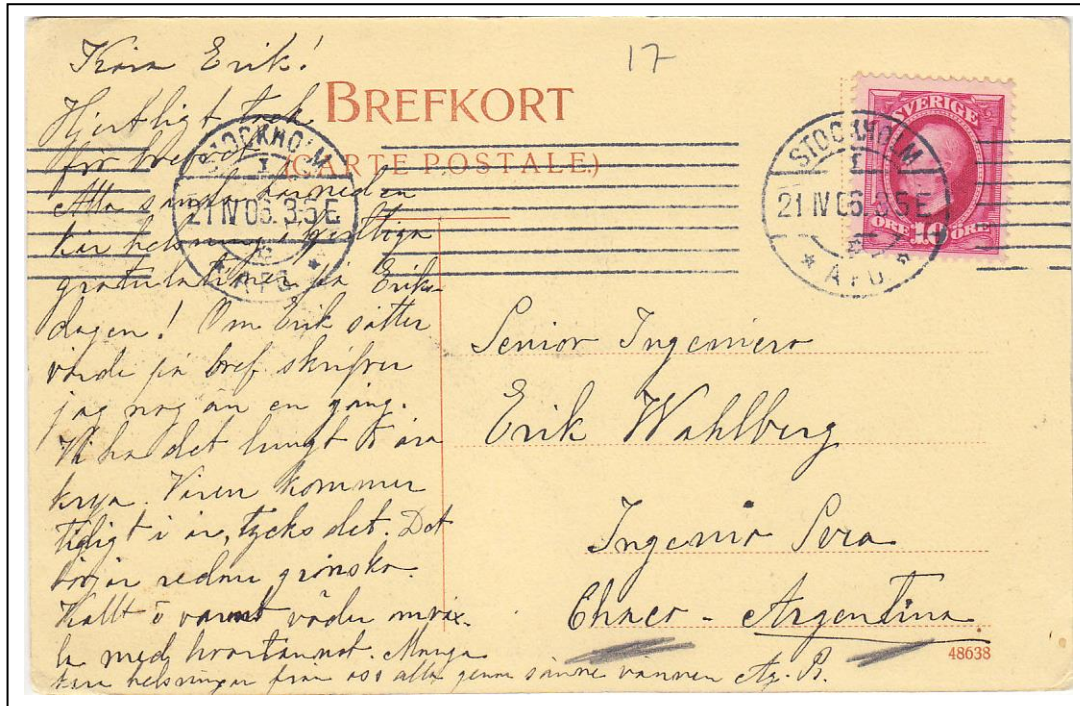 17
BREFKORT
(CARTE POSTALE.)
Kära Erik!
Hjertligt tack
för brefvet.
Alla sända härmeden
kär helsning, hjertliga
gratulationer på Eriks
dagen! Om Erik sätter
värde på bref skrifver
jag nog än en gång.
Vi ha det lungt o ära
krya. Våren kommer
tidigt i år, tycks det. Det
börjar redan grönska.
Kallt o varmt väder omväx-
la med hvartannat. Många
kära helsningar från oss alla genom sanne vännen
STOCKHOLM
1
21 IV 06. 3.5 E
AFG.
STOCKHOLM
1
21 IV 06. 3.5 E
AFG.
SVERIGE
ÖRE 10 ÖRE
Senior Ingeniero
Erik Wahlberg
Ingenio Svea
Chaco - Argentina.
48638